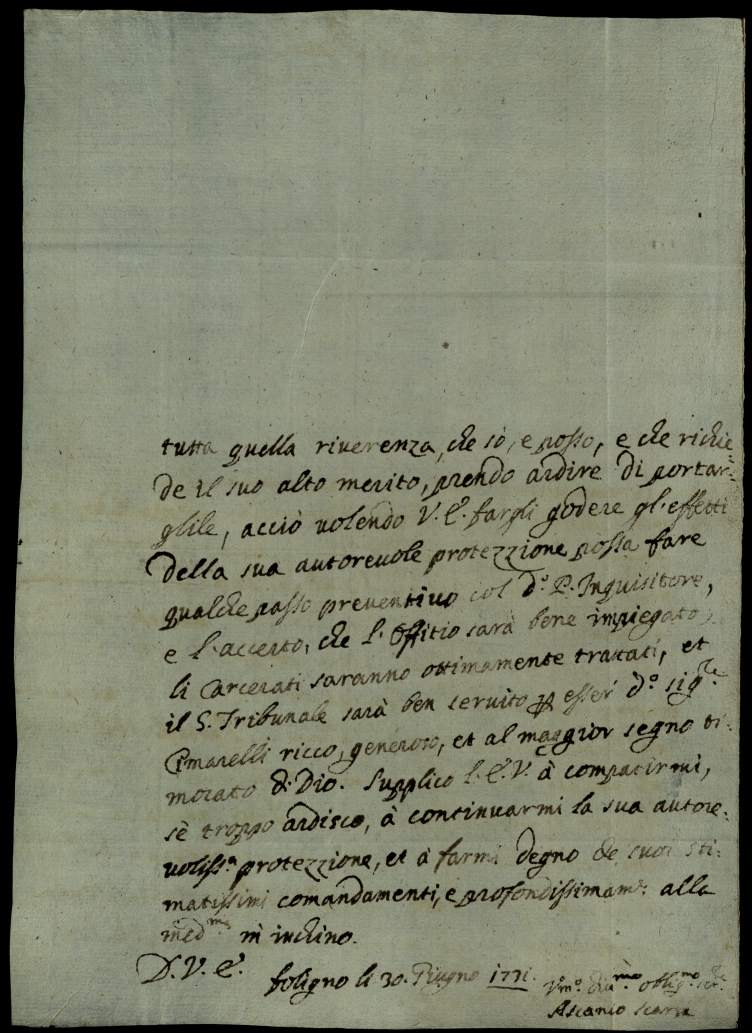 tutta quella riuerenza, che sò, e posso, e che richie=
de il suo alto merito, prendo ardire di portar=
glile, acciò uolendo V. E. fargli godere gl'effetti
della sua autoreuole protezzione possa fare
qualche passo preventiuo col d.º P. Inquisitore,
e l'accerto, che l'Offitio sarà bene impiegato,
li Carcerati saranno ottimamente trattati, et
il S. Tribunale sarà ben seruito p esser d.º sig.re
Cimarelli ricco, generoso, et al maggior segno ti=
morato di Dio. Supplico l'E.V. à compatirmi,
sè troppo ardisco, à continuarmi la sua autore=
uoliss.a protezzione, et à farmi degno de suoi sti=
matissimi comandamenti, e profondissimam.e alla
med.ma m'inchino.
D. V. E. foligno li 30. Giugno 1731. V.mo diu.mo oblig.mo
Ascanio